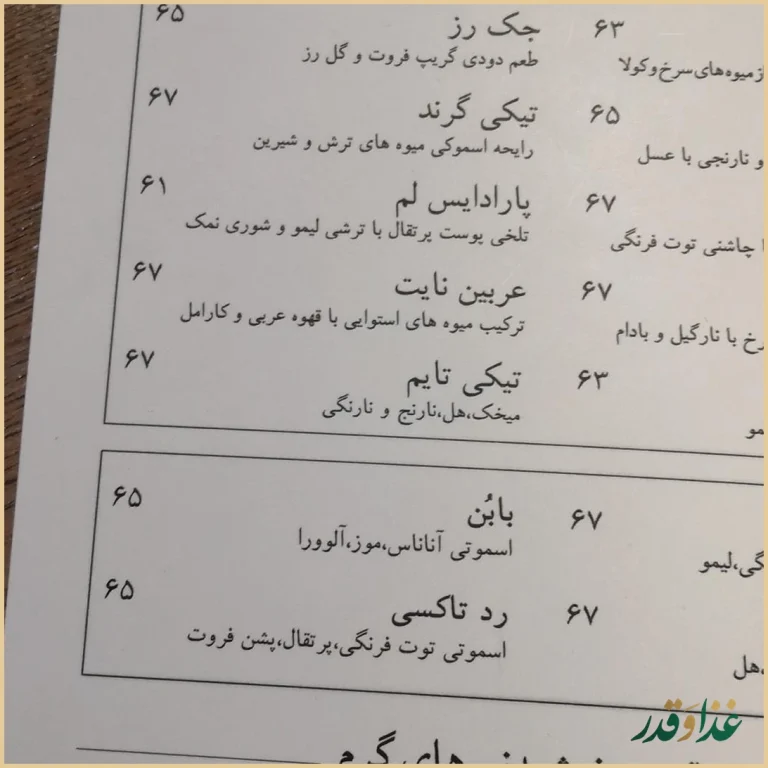 ۶۳
از میوه‌های سرخ و کولا
۶۵
و نارنجی با عسل
۶۷
چاشنی توت فرنگی
۶۷
با نارگیل و بادام
۶۳
جک رز ۶۵
طعم دودی گریپ فروت و گل رز
تیکی گرند ۶۷
رایحه اسموکی میوه های ترش و شیرین
پارادایس لم ۶۱
تلخی پوست پرتقال با ترشی لیمو و شوری نمک
عربین نایت ۶۷
ترکیب میوه های استوایی با قهوه عربی و کارامل
تیکی تایم ۶۷
میخک،هل،نارنج و نارنگی
۶۷
لیمو
۶۷
هل
بابُن ۶۵
اسموتی آناناس،موز،آلوورا
رد تاکسی ۶۵
اسموتی توت فرنگی،پرتقال،پشن فروت
های گرم
غذا و قدر